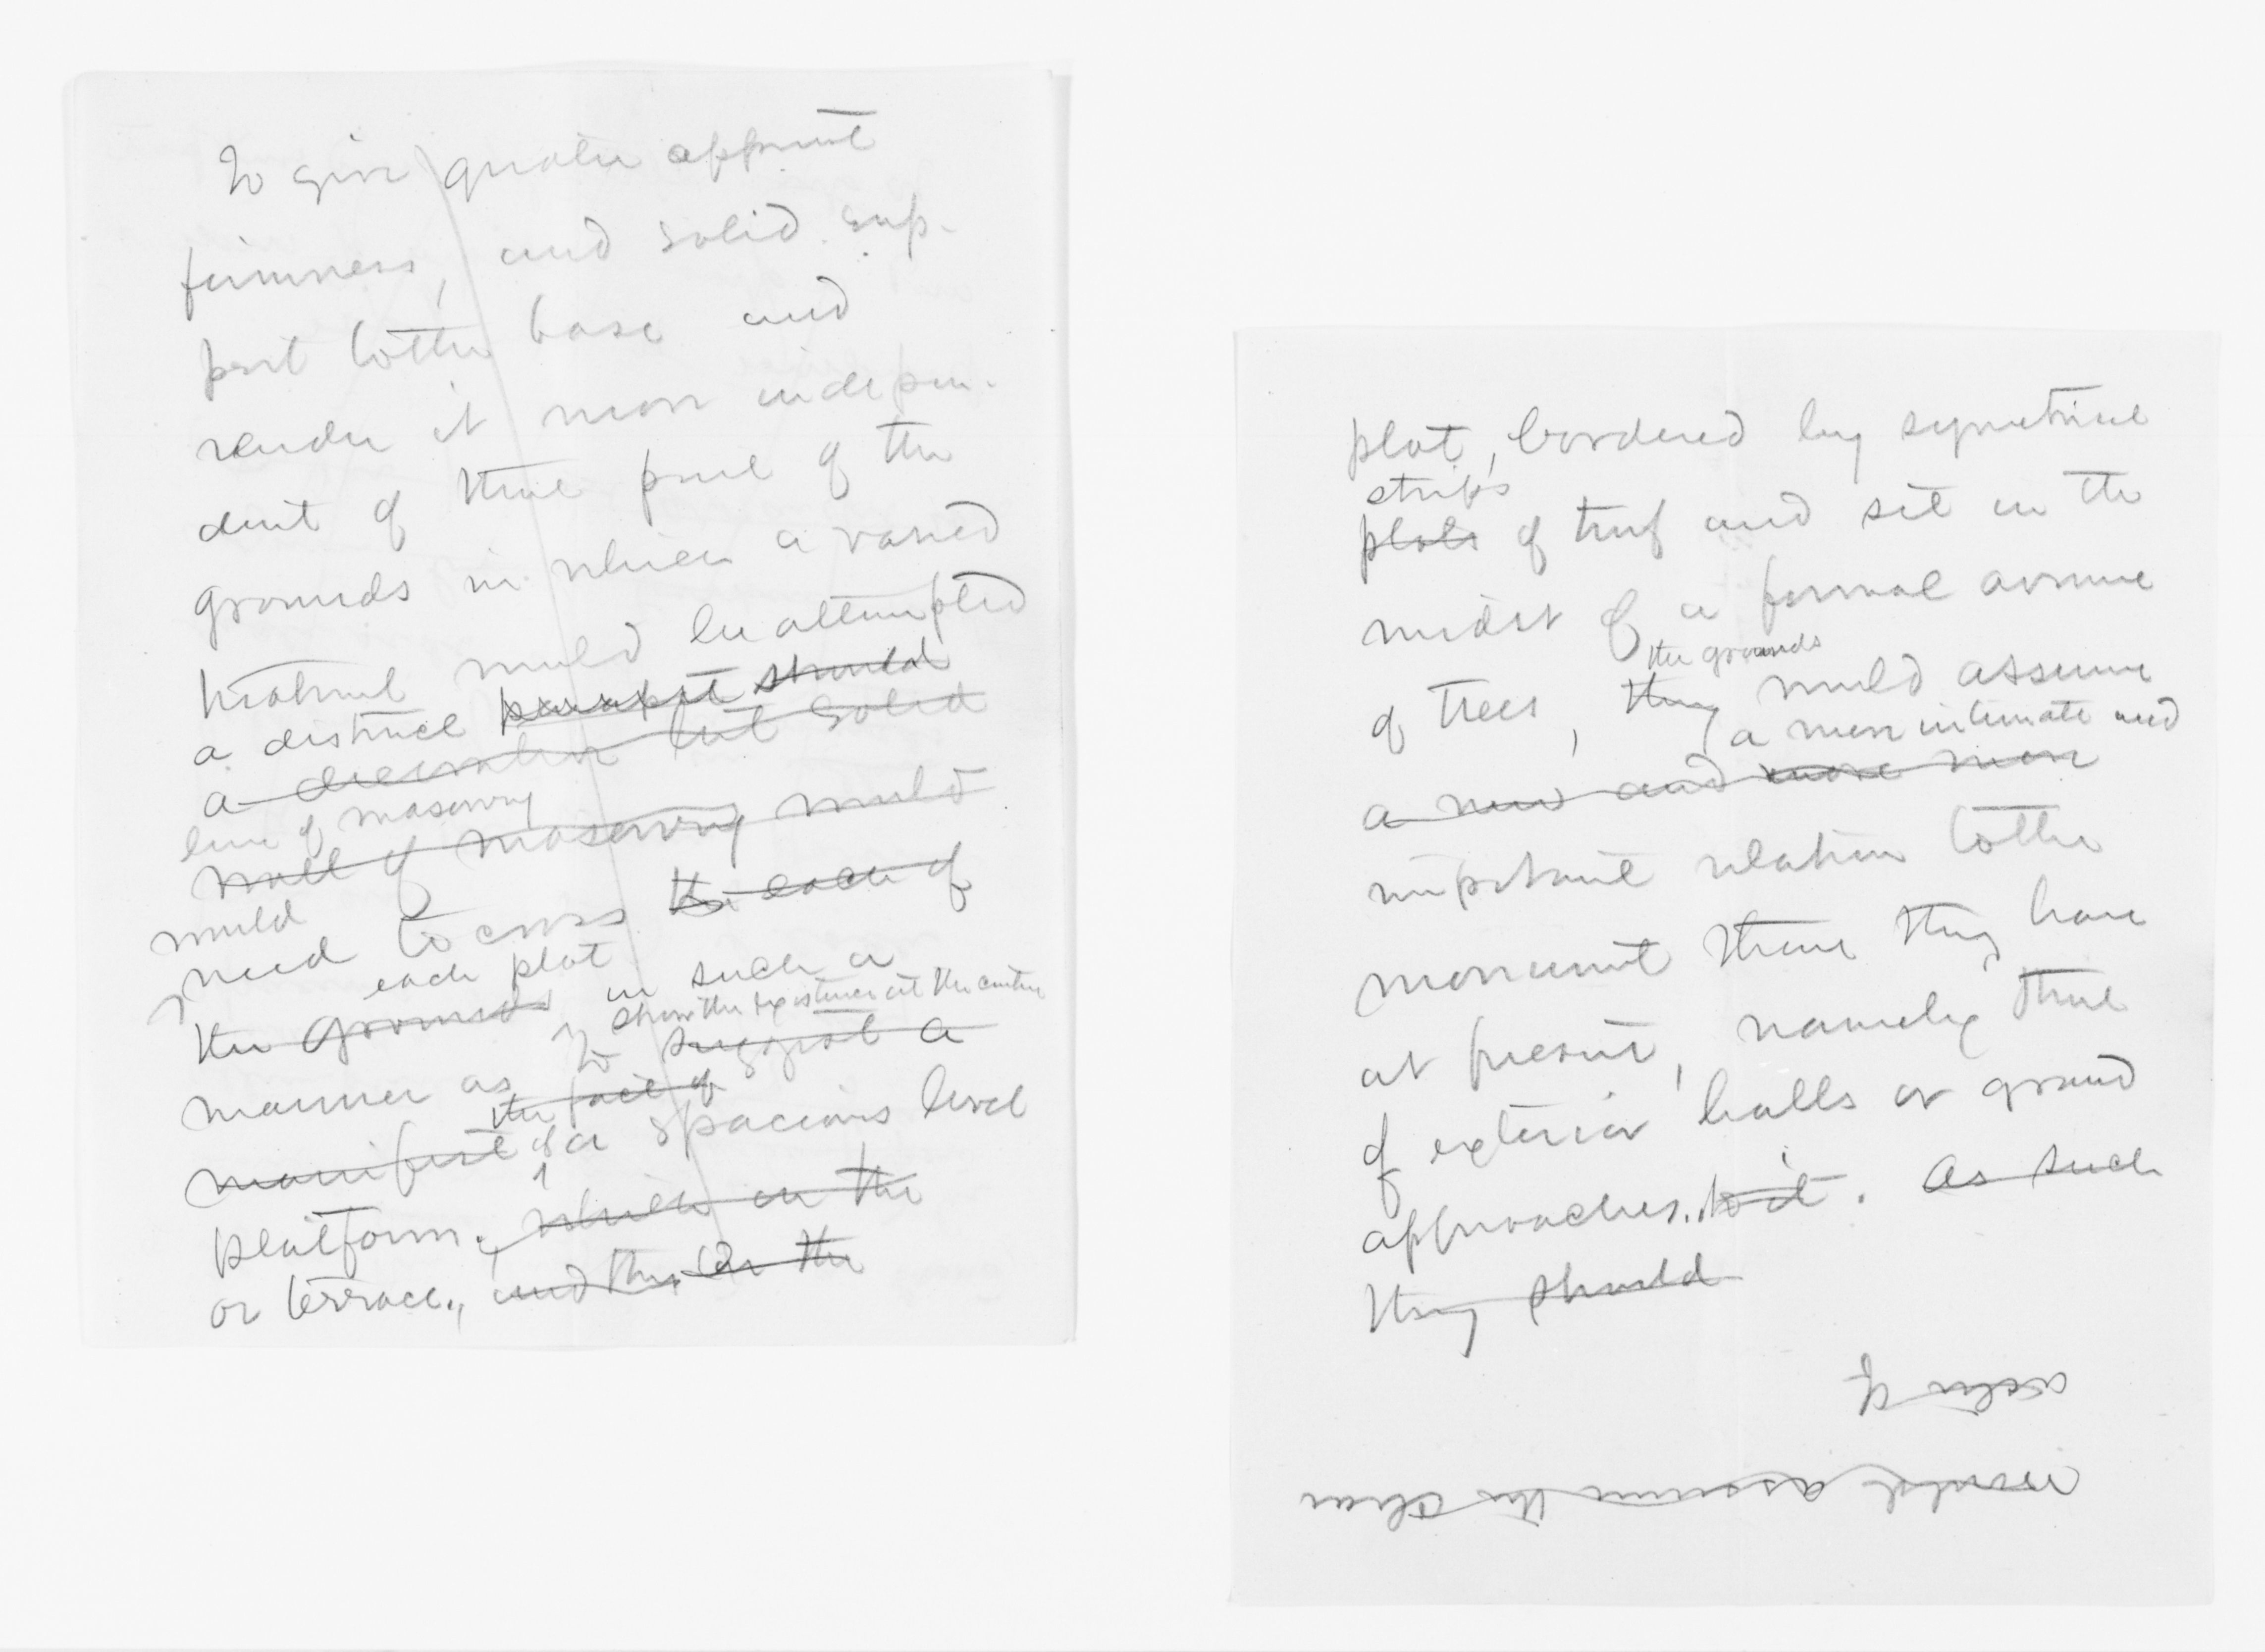 To give greater apparent
firmness, and solid sup-
port to the base and
render it more indepen-
dent of that part of the
grounds in which a varied
treatment would be attempted
a distinct parapet should
a decorative but solid
line of masonry
wall of masonry would
would
need to cross the each of
each plot in such a
the grounds
show the existence at the centre
manner as to suggest a
the face of
manifest of a spacious level
platform, which on the
or terrace., and thus on the
plot, bordered by symetrical
strips
plots of turf and set in the
midst of a formal avenue
the grounds
of trees, they would assume
a more intimate and
a new and more more
important relation to the
monument than they have
at present, namely that
of exterior halls or grand
approaches. to it. As such
they should
of
would assume the char